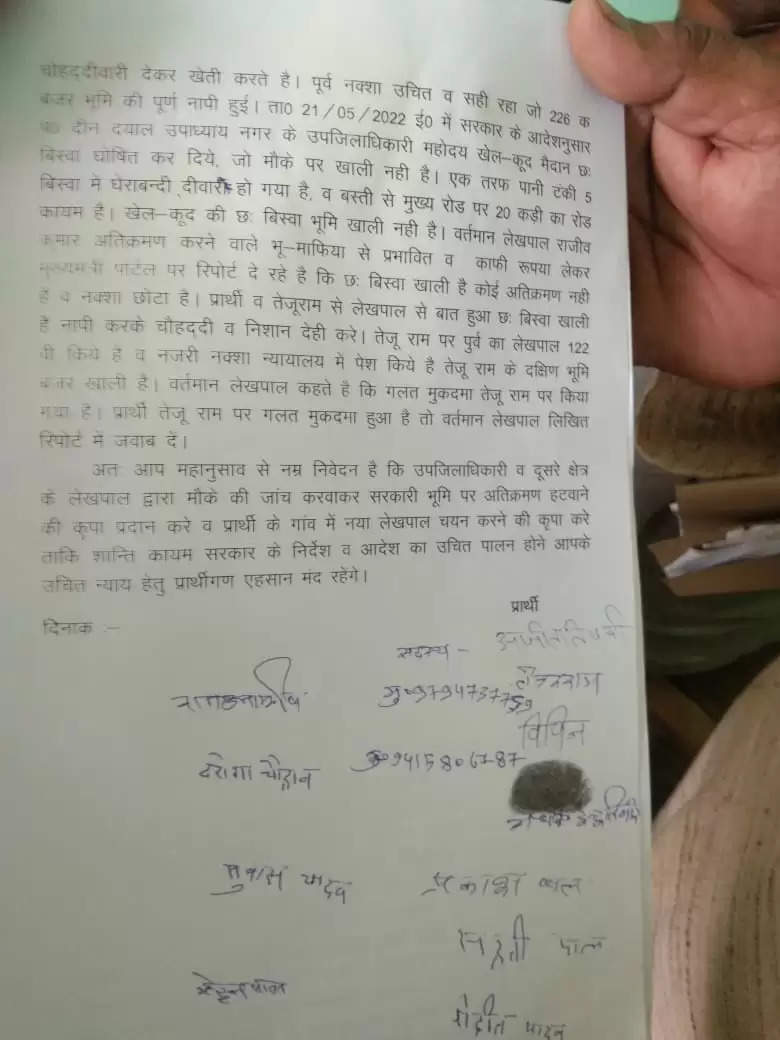 चोहद्दीवारी देकर खेती करते है। पूर्व नक्शा उचित व सही रहा जो 226 क
बंजर भूमि की पूर्ण नापी हुई। ता0 21/05/2022 ई0 में सरकार के आदेशनुसार
पं0 दीन दयाल उपाध्याय नगर के उपजिलाधिकारी महोदय खेल–कूद मैदान छः
बिस्वा घोषित कर दिये, जो मौके पर खाली नही है। एक तरफ पानी टंकी 5
बिस्वा में घेराबन्दी दीवार हो गया है, व बस्ती से मुख्य रोड पर 20 कड़ी का रोड
कायम है। खेल–कूद की छः बिस्वा भूमि खाली नही है। वर्तमान लेखपाल राजीव
कुमार अतिक्रमण करने वाले भू–माफिया से प्रभावित व काफी रूपया लेकर
मुख्यमंत्री पोर्टल पर रिपोर्ट दे रहे है कि छः बिस्वा खाली है कोई अतिक्रमण नही
है व नक्शा छोटा है। प्रार्थी व तेजूराम से लेखपाल से बात हुआ छः बिस्वा खाली
है नापी करके चौहद्दी व निशान देही करे। तेजू राम पर पुर्व का लेखपाल 122
बी किये है व नजरी नक्शा न्यायालय में पेश किये है तेजू राम के दक्षिण भूमि
बंजर खाली है। वर्तमान लेखपाल कहते है कि गलत मुकदमा तेजू राम पर किया
गया है। प्रार्थी तेजू राम पर गलत मुकदमा हुआ है तो वर्तमान लेखपाल लिखित
रिपोर्ट में जवाब दें।
अतः आप महानुसाव से नम्र निवेदन है कि उपजिलाधिकारी व दूसरे क्षेत्र
के लेखपाल द्वारा मौके की जांच करवाकर सरकारी भूमि पर अतिक्रमण हटवाने
की कृपा प्रदान करे व प्रार्थी के गांव में नया लेखपाल चयन करने की कृपा करे
ताकि शान्ति कायम सरकार के निर्देश व आदेश का उचित पालन होने आपके
उचित न्याय हेतु प्रार्थीगण एहसान मंद रहेंगे।
प्रार्थी
दिनांक :–
सदस्य –
विपिन
दरोगा चौहान
9415806787
सुवास यादव
प्रकाश पाल
पाल
रोहीत यादव